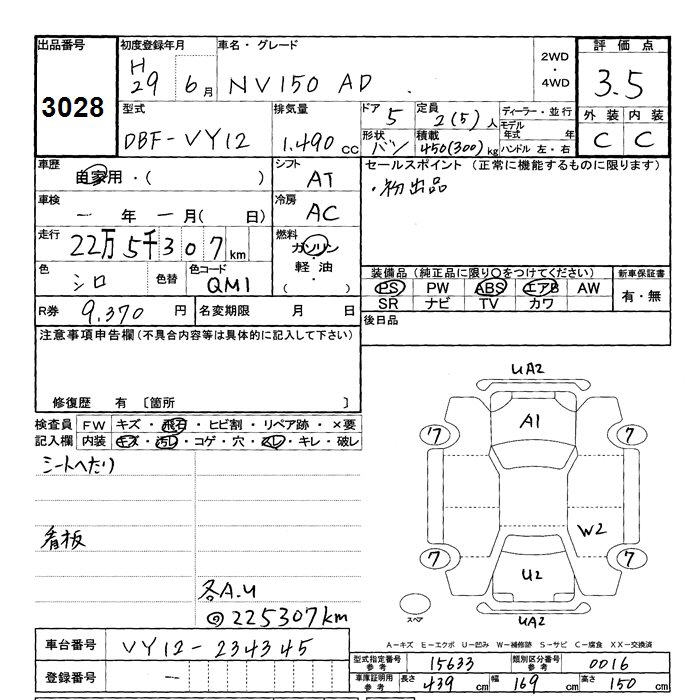 出品番号 初度登録年月 車名・グレード 2WD・4WD 評価点
3028 H29 6月 NV150 AD 3.5
型式 排気量 ドア 5 定員 2(5)人 ディーラー・並行 外装 内装
DBF-VY12 1.490cc 形状 バン 積載 450(300)kg モデル年式 年 ハンドル 左・右 C C
車歴 自家用・( ) シフト AT セールスポイント(正常に機能するものに限ります)
・初出品
車検 - 年 - 月( 日) 冷房 AC
走行 22万5千307km 燃料 ガソリン・軽油・( )
色 シロ 色替 色コード QM1 装備品(純正品に限り○をつけてください) 新車保証書
PS PW ABS エアB AW 有・無
SR ナビ TV カワ
R券 9,370円 名変期限 月 日 後日品
注意事項申告欄(不具合内容等は具体的に記入して下さい)
修復歴 有 〔箇所 〕
検査員 FW キズ・飛石・ヒビ割・リペア跡・×要
記入欄 内装 キズ・汚レ・コゲ・穴・スレ・キレ・破レ
シートへたり
看板
各A.U
@225307km
UA2
A1
7 7
W2
7 7
U2
スペア UA2
A-キズ E-エクボ U-凹み W-補修跡 S-サビ C-腐食 XX-交換済
車台番号 VY12-234345
登録番号 -
型式指定番号 参考 15633 類別区分番号 参考 0016
車庫証明用 参考 長さ 439cm 幅 169cm 高さ 150cm